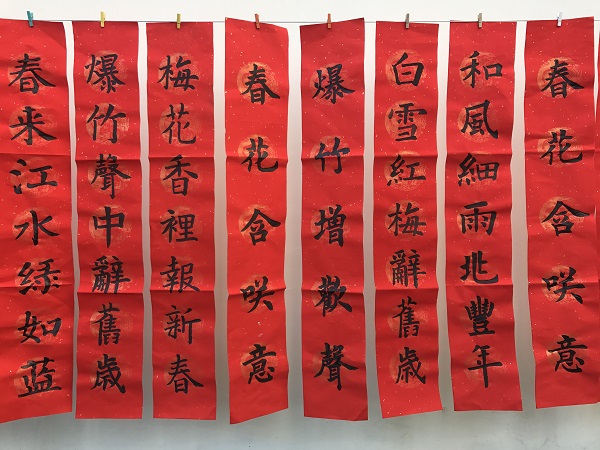 春来江水緑如蓝
爆竹聲中辭舊歳
梅花香裡報新春
春花含咲意
爆竹增歓聲
白雪紅梅辭舊歳
和風細雨兆豐年
春花含咲意